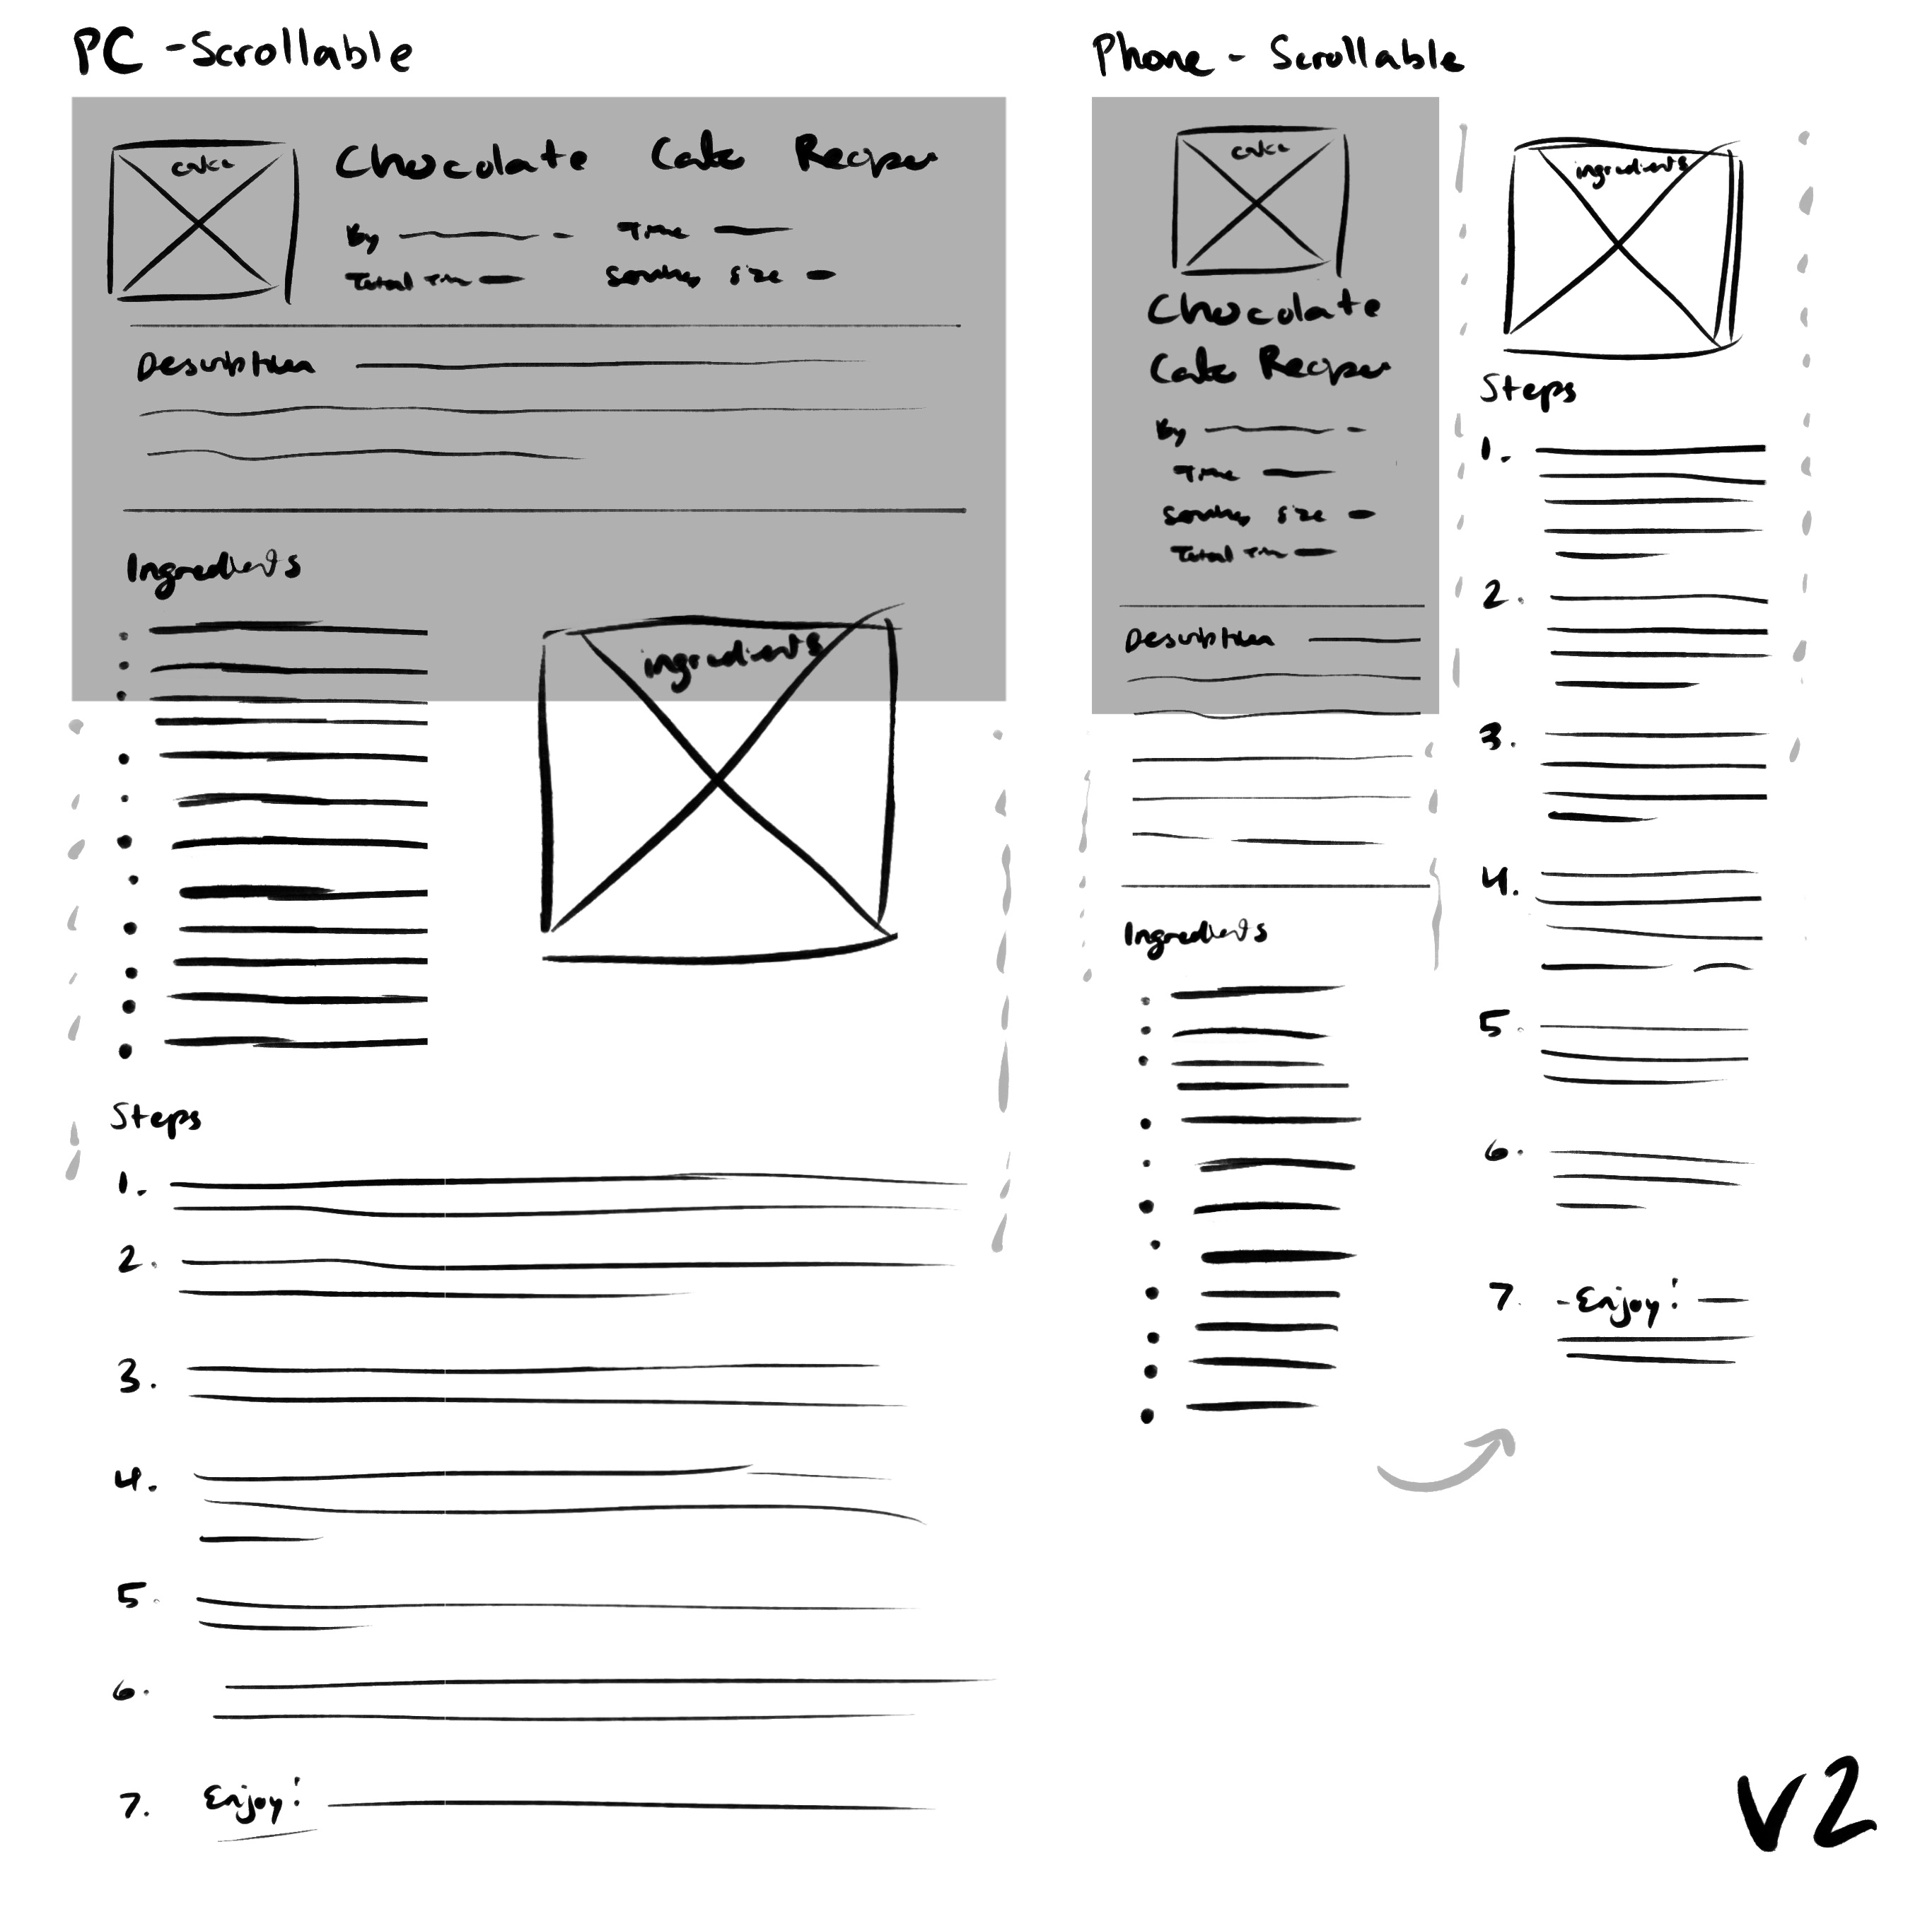 PC - Scrollable
cake
Chocolate Cake Recipe
By Time
Total Time Serving Size
Description
Ingredients
ingredients
Steps
1.
2.
3.
4.
5.
6.
7. Enjoy!
Phone - Scrollable
cake
Chocolate
Cake Recipe
By
Time
Serving Size
Total Time
Description
Ingredients
ingredients
Steps
1.
2.
3.
4.
5.
6.
7. - Enjoy! -
V2